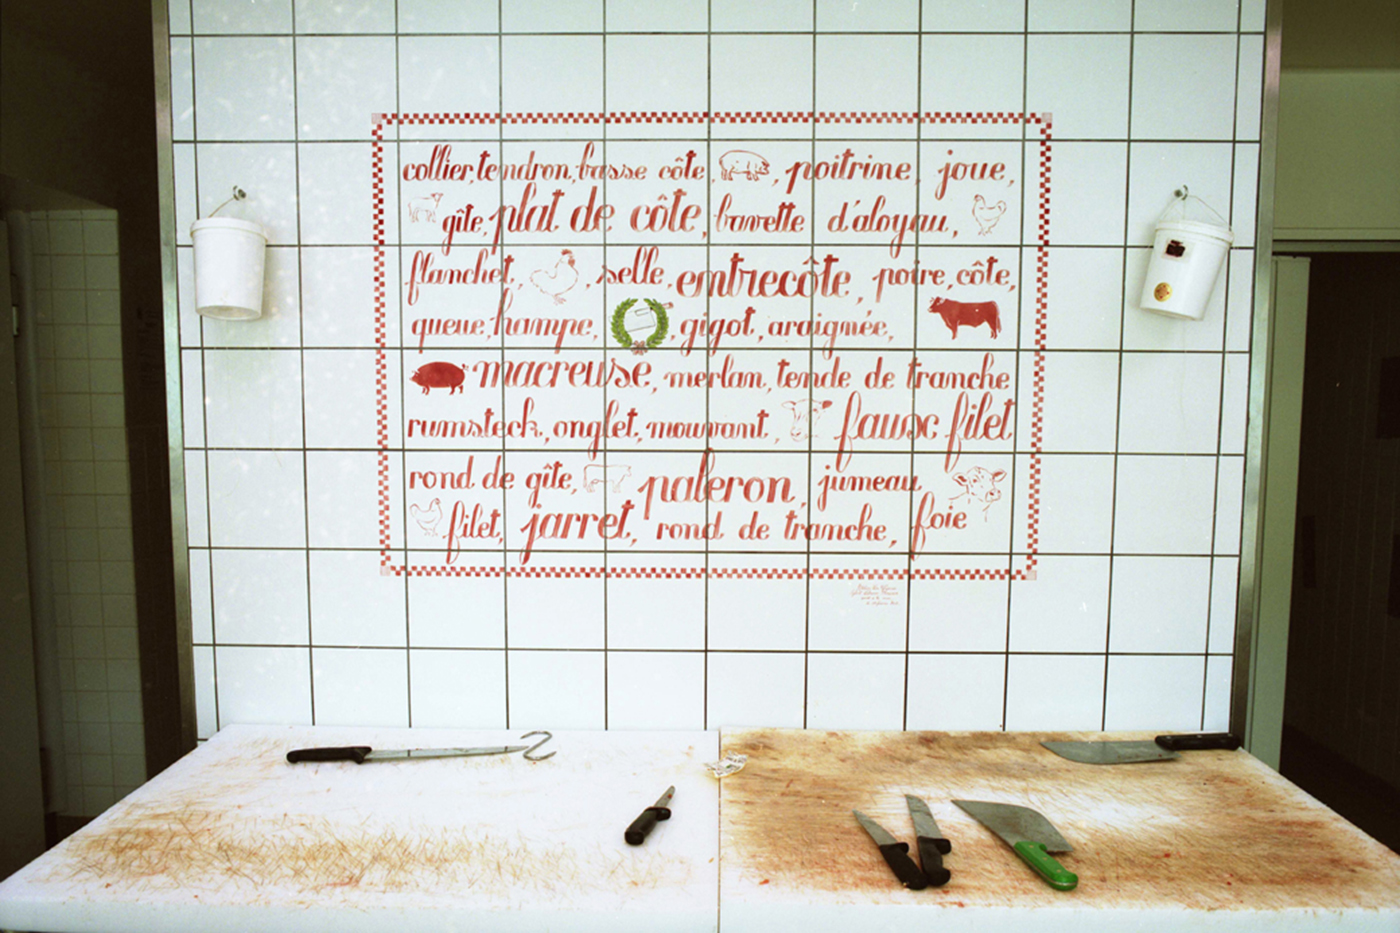 collier, tendron, basse côte, , poitrine, joue,
gîte, plat de côte, bavette d'aloyau,
flanchet, , selle, entrecôte, poire, côte,
queue, hampe, , gigot, araignée,
macreuse, merlan, tende de tranche
rumsteck, onglet, mouvant, faux filet
rond de gîte, paleron, jumeau
filet, jarret, rond de tranche, foie